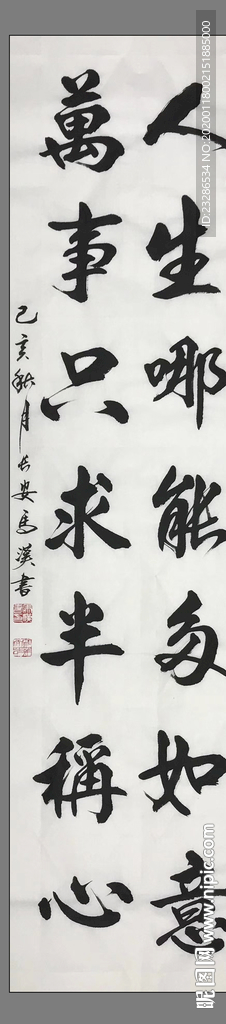 人生哪能多如意
萬事只求半稱心
己亥秋月长安馬漢書
ID:23286534 NO:20200118002151885000
昵图网 www.nipic.com